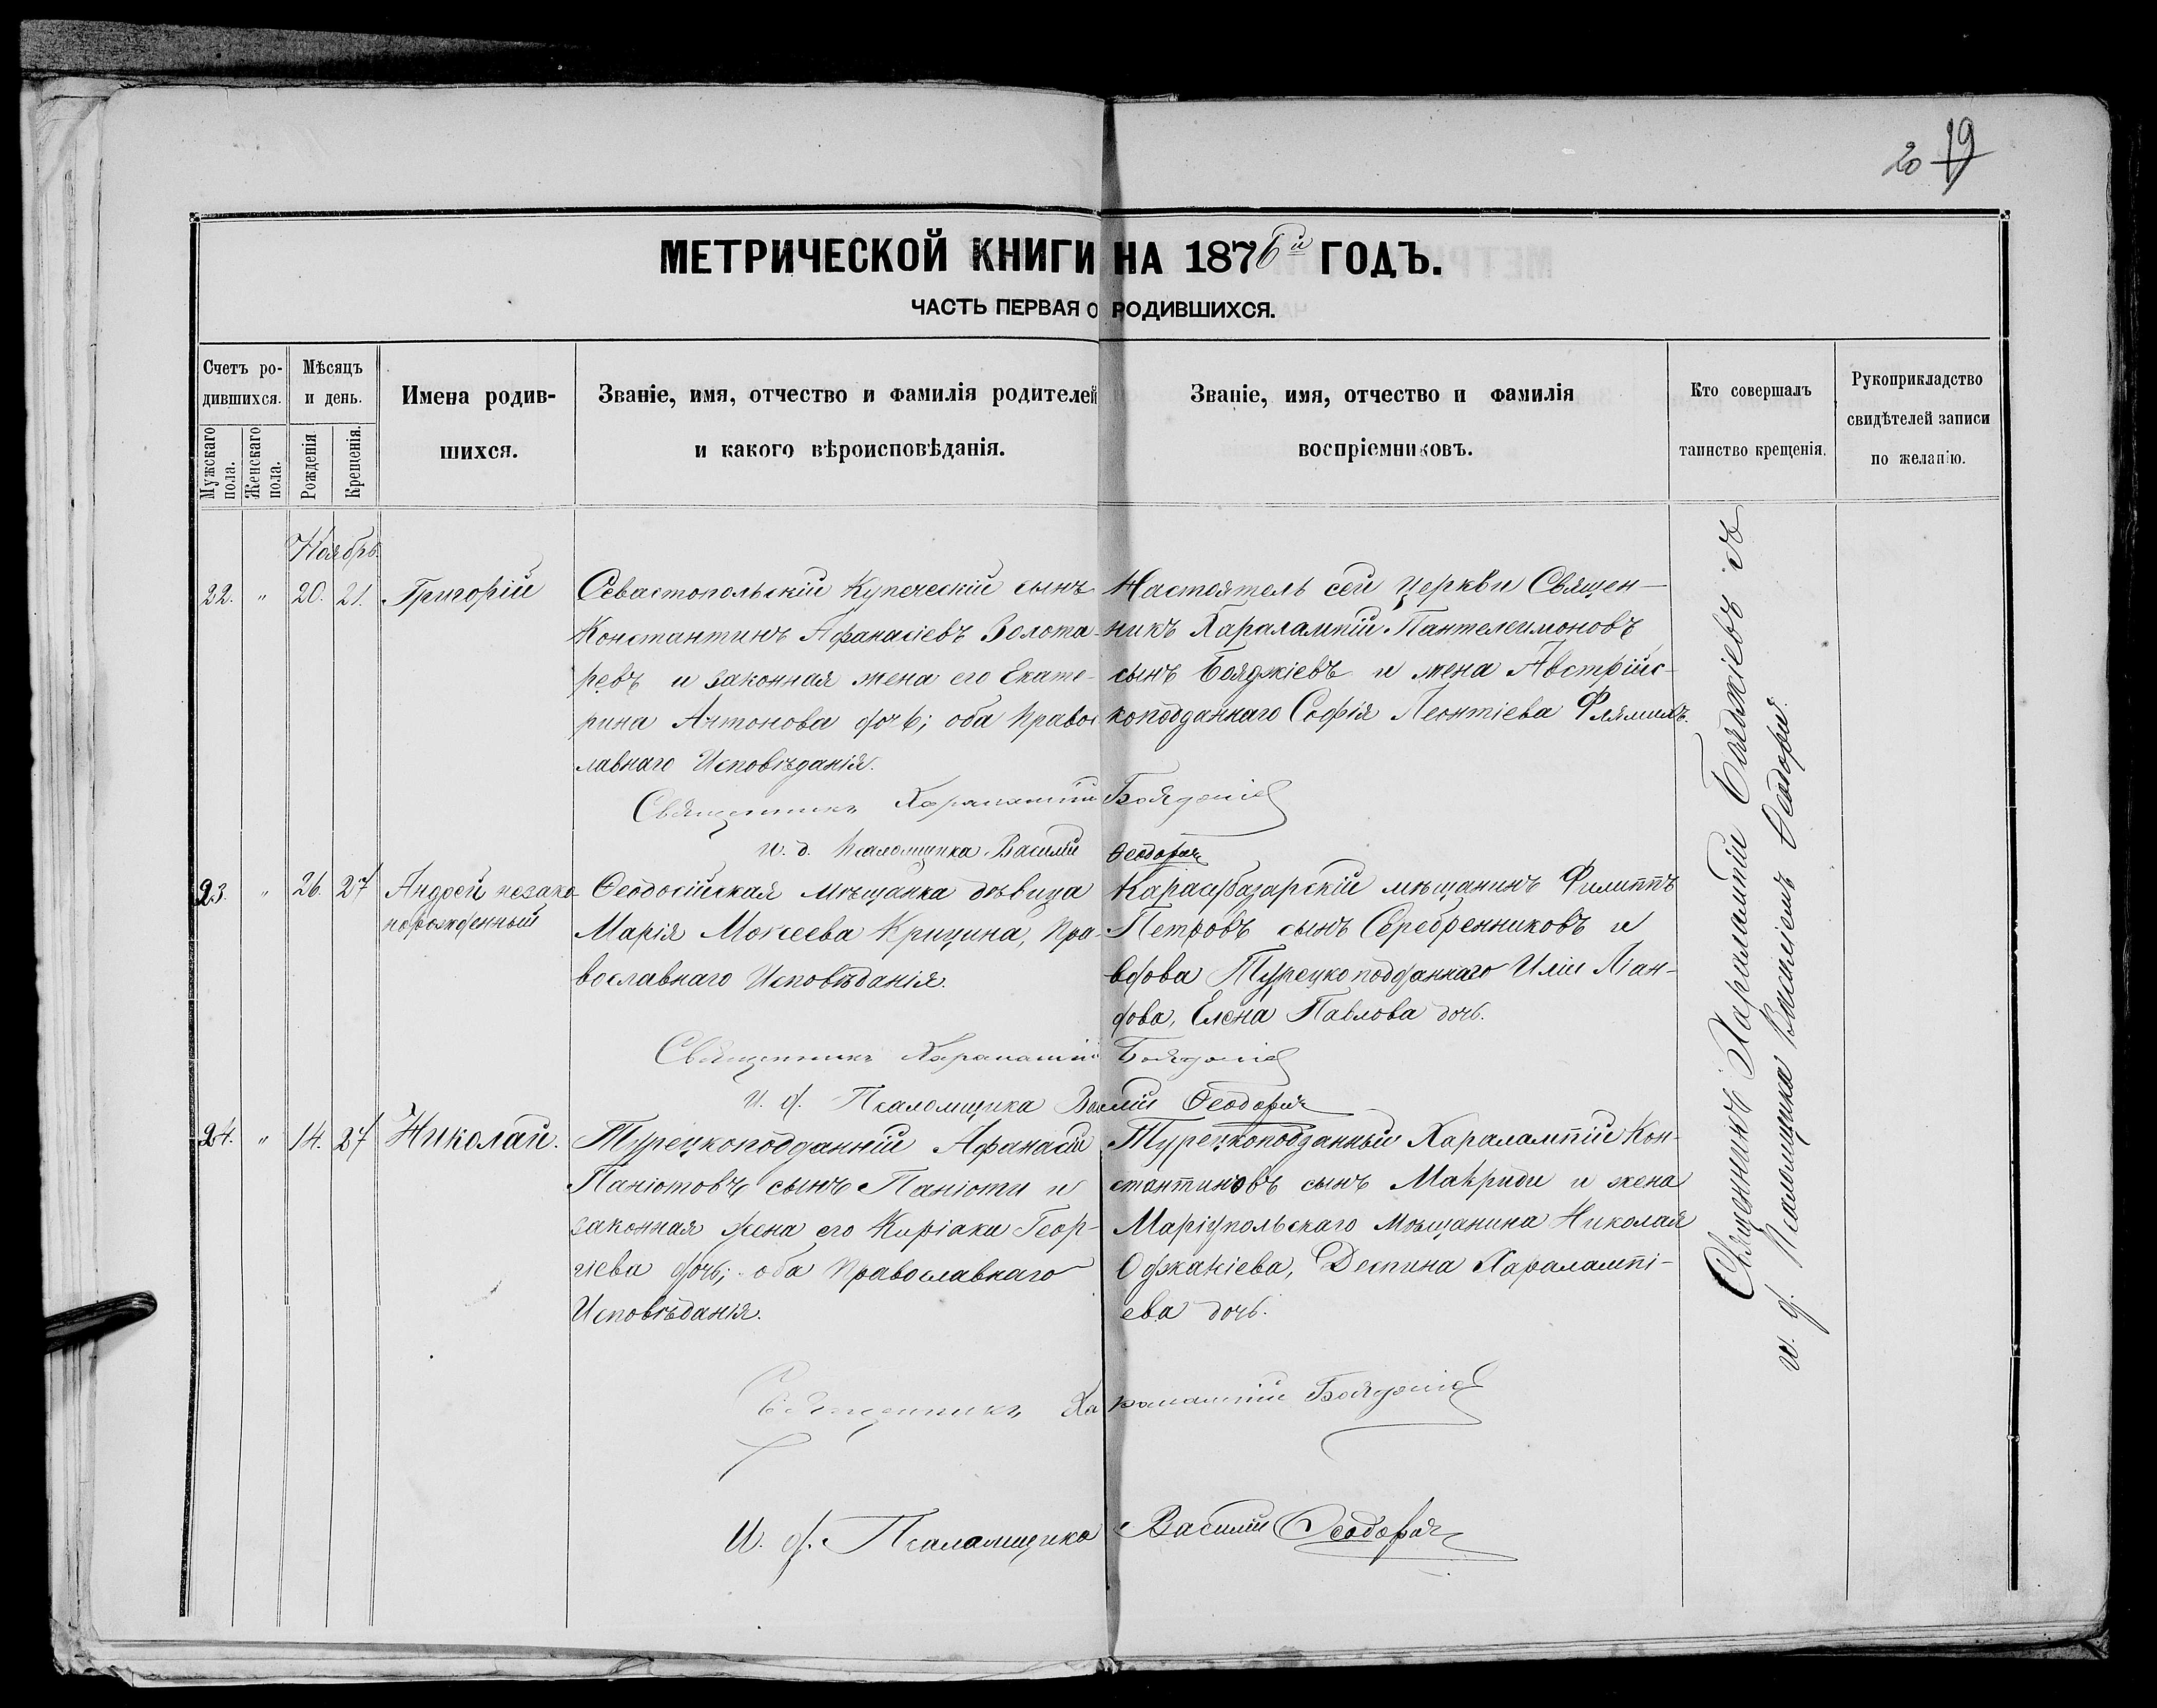 20 19
МЕТРИЧЕСКОЙ КНИГИ НА 1876й ГОДЪ.
ЧАСТЬ ПЕРВАЯ О РОДИВШИХСЯ.
Счетъ ро-
дившихся.
Мужскаго пола.
Женскаго пола.
Мѣсяцъ
и день.
Рожденія
Крещенія.
Имена родив-
шихся.
Званіе, имя, отчество и фамилія родителей
и какого вѣроисповѣданія.
Званіе, имя, отчество и фамилія
воспріемниковъ.
Кто совершалъ
таинство крещенія.
Рукоприкладство
свидѣтелей записи
по желанію.
Ноябрь.
22. " 20. 21. Григорій
Севастопольскій Купеческій сынъ
Константинъ Афанасіевъ Золота-
ревъ и законная жена его Екате-
рина Антонова дочь; оба Правос
лавнаго Исповѣданія.
Настоятель сей церкви Священ-
никъ Харалампій Пантелеимоновъ
сынъ Бояджіевъ и жена Австрійс-
коподданнаго Софія Леонтіева
Священникъ Харалампій Бояджіев
и. д. Псаломщика Василій Ѳеодори
23. " 26. 27 Андрей незако-
норожденный
Ѳеодосійская Мѣщанка дѣвица
Марія Моисеева Крицина, Пра-
вославнаго Исповѣданія.
Карасубазарскій мѣщанинъ Филиппъ
Петровъ сынъ Серебренниковъ и
вдова Турецкоподданнаго Иліи Ліан-
дова, Елена Павлова дочь.
Священникъ Харалампій Бояджіев
И. д. Псаломщика Василій Ѳеодори
24. " 14. 27 Николай.
Турецкоподданній Афанасій
Паніотовъ сынъ Паніоти и
законная жена его Киріаки Геор-
гіева дочь; оба Православнаго
Исповѣданія.
Турецкоподданный Харалампій Кон-
стантиновъ сынъ Макриди и жена
Маріупольскаго Мѣщанина Николая
Оджакіева, Деспина Харалампі-
ева дочь.
Священникъ Харалампій Бояджіев
И. д. Псаломщика Василій Ѳеодори
Священникъ Харалампій Бояджіевъ съ
и. д. Псаломщика Василіемъ Ѳеодори